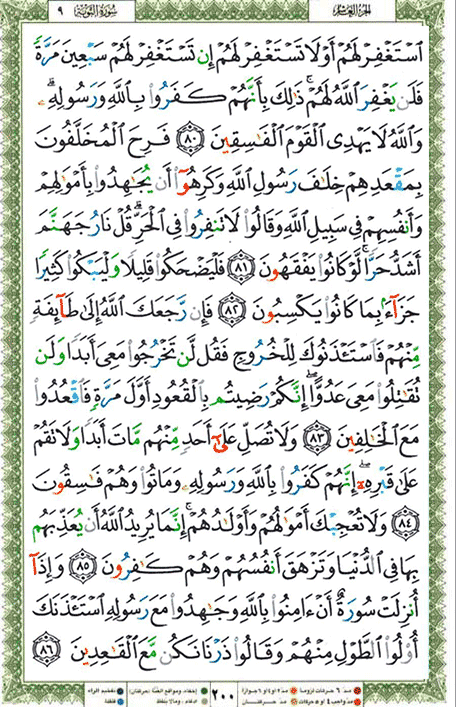 سُورَةُ التَّوْبَةِ ٩
الجزء العاشر
ٱسْتَغْفِرْ لَهُمْ أَوْ لَا تَسْتَغْفِرْ لَهُمْ إِن تَسْتَغْفِرْ لَهُمْ سَبْعِينَ مَرَّةً
فَلَن يَغْفِرَ ٱللَّهُ لَهُمْ ۚ ذَٰلِكَ بِأَنَّهُمْ كَفَرُوا۟ بِٱللَّهِ وَرَسُولِهِۦ ۗ
وَٱللَّهُ لَا يَهْدِى ٱلْقَوْمَ ٱلْفَـٰسِقِينَ ٨٠ فَرِحَ ٱلْمُخَلَّفُونَ
بِمَقْعَدِهِمْ خِلَـٰفَ رَسُولِ ٱللَّهِ وَكَرِهُوٓا۟ أَن يُجَـٰهِدُوا۟ بِأَمْوَٰلِهِمْ
وَأَنفُسِهِمْ فِى سَبِيلِ ٱللَّهِ وَقَالُوا۟ لَا تَنفِرُوا۟ فِى ٱلْحَرِّ ۗ قُلْ نَارُ جَهَنَّمَ
أَشَدُّ حَرًّا ۚ لَّوْ كَانُوا۟ يَفْقَهُونَ ٨١ فَلْيَضْحَكُوا۟ قَلِيلًا وَلْيَبْكُوا۟ كَثِيرًا
جَزَآءًۢ بِمَا كَانُوا۟ يَكْسِبُونَ ٨٢ فَإِن رَّجَعَكَ ٱللَّهُ إِلَىٰ طَآئِفَةٍ
مِّنْهُمْ فَٱسْتَـْٔذَنُوكَ لِلْخُرُوجِ فَقُل لَّن تَخْرُجُوا۟ مَعِىَ أَبَدًا وَلَن
تُقَـٰتِلُوا۟ مَعِىَ عَدُوًّا ۖ إِنَّكُمْ رَضِيتُم بِٱلْقُعُودِ أَوَّلَ مَرَّةٍ فَٱقْعُدُوا۟
مَعَ ٱلْخَـٰلِفِينَ ٨٣ وَلَا تُصَلِّ عَلَىٰٓ أَحَدٍ مِّنْهُم مَّاتَ أَبَدًا وَلَا تَقُمْ
عَلَىٰ قَبْرِهِۦٓ ۖ إِنَّهُمْ كَفَرُوا۟ بِٱللَّهِ وَرَسُولِهِۦ وَمَاتُوا۟ وَهُمْ فَـٰسِقُونَ
٨٤ وَلَا تُعْجِبْكَ أَمْوَٰلُهُمْ وَأَوْلَـٰدُهُمْ ۚ إِنَّمَا يُرِيدُ ٱللَّهُ أَن يُعَذِّبَهُم
بِهَا فِى ٱلدُّنْيَا وَتَزْهَقَ أَنفُسُهُمْ وَهُمْ كَـٰفِرُونَ ٨٥ وَإِذَآ
أُنزِلَتْ سُورَةٌ أَنْ ءَامِنُوا۟ بِٱللَّهِ وَجَـٰهِدُوا۟ مَعَ رَسُولِهِ ٱسْتَـْٔذَنَكَ
أُو۟لُوا۟ ٱلطَّوْلِ مِنْهُمْ وَقَالُوا۟ ذَرْنَا نَكُن مَّعَ ٱلْقَـٰعِدِينَ ٨٦
مدّ ٦ حركات لزوماً مدّ ٢ أو ٤ أو ٦ جوازاً إخفاء، ومواقع الغنّة (حركتان) تفخيم الراء
مدّ واجب ٤ أو ٥ حركات مدّ حركتان إدغام، وما لا يُلفظ قلقلة
٢٠٠